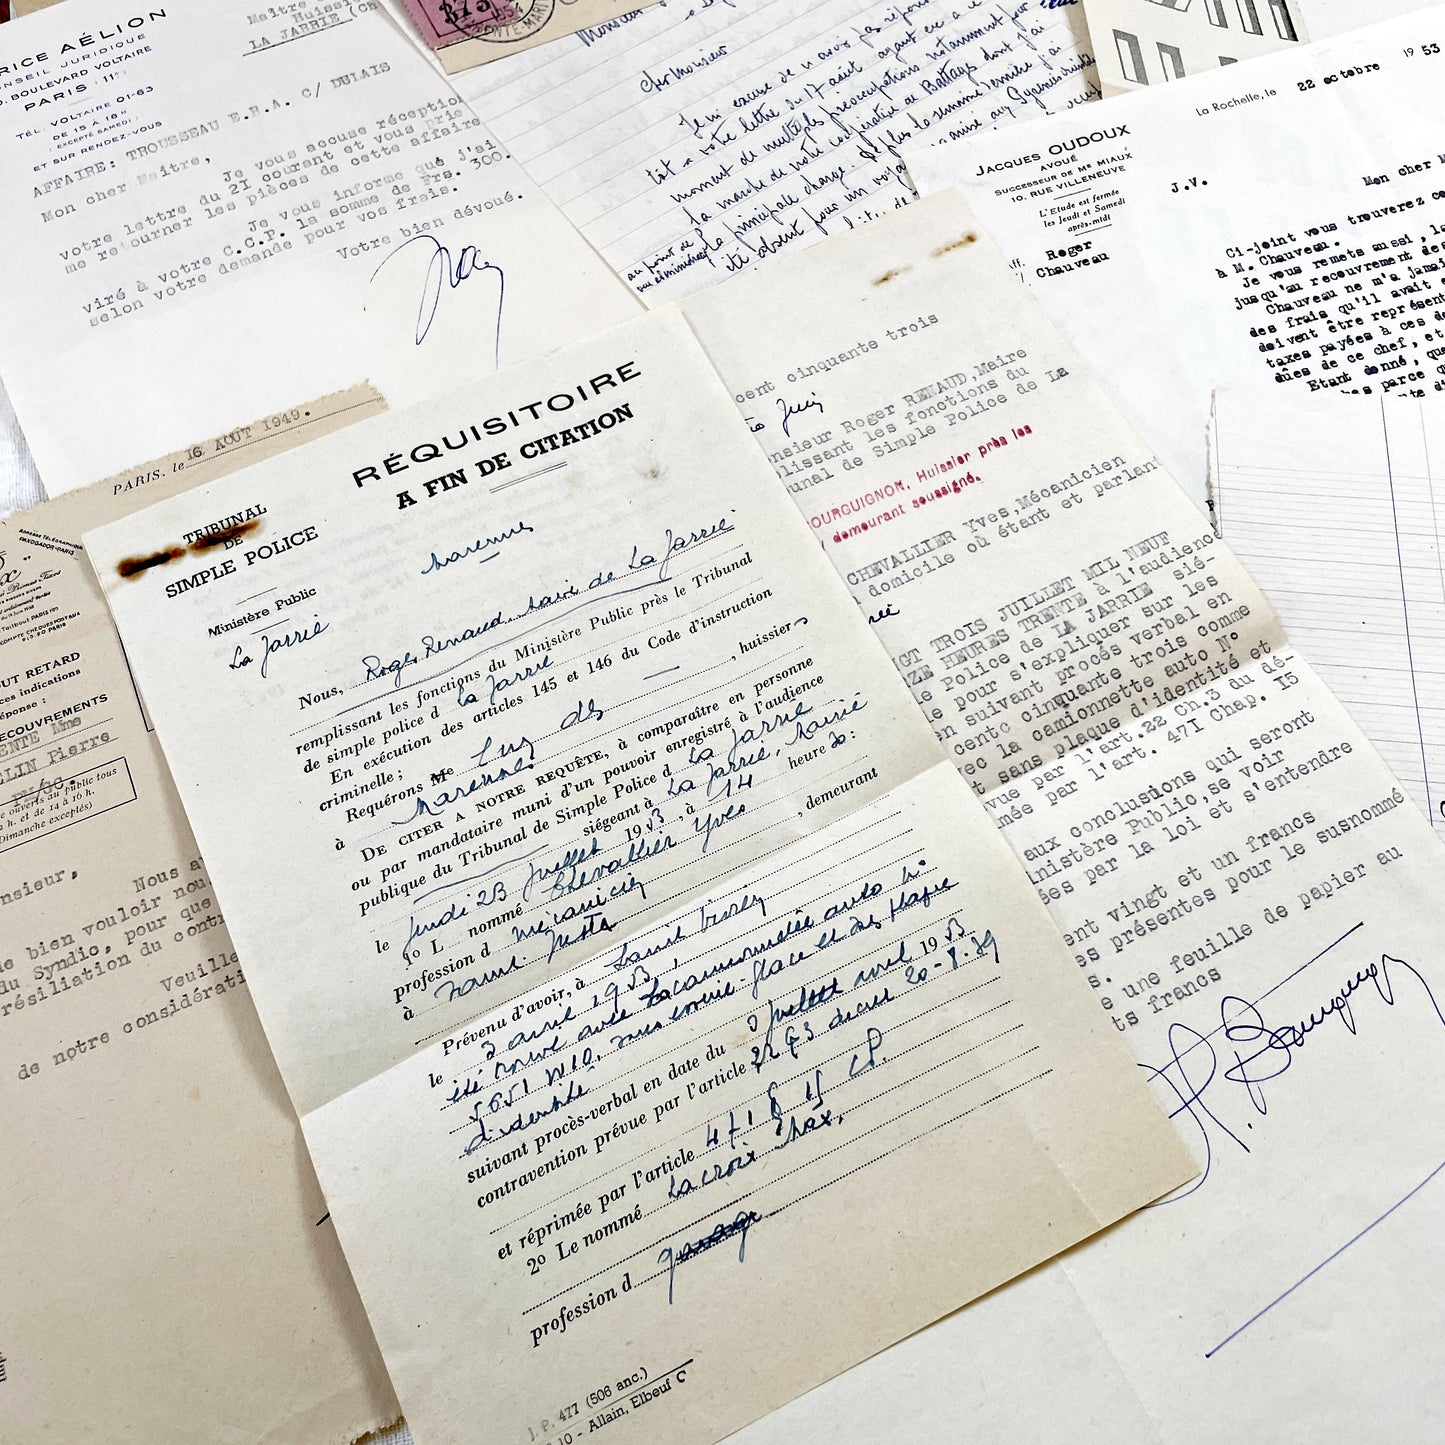 RICE AÉLION
CONSEIL JURIDIQUE
BOULEVARD VOLTAIRE
PARIS
TÉL. VOLTAIRE 01-63
DE 15 À 18 H
EXCEPTÉ SAMEDI
ET SUR RENDEZ-VOUS
Maître
Huissi
LA JARRIE (Ch
AFFAIRE: TROUSSEAU E.R.A. C/ DULAIS
Mon cher Maître,
Je vous accuse réception
votre lettre du 21 courant et vous prie
me retourner les pièces de cette affaire
Je vous informe que j'ai
viré à votre C.C.P. la somme de Frs. 300.
selon votre demande pour vos frais.
Votre bien dévoué.
375
1954
cher Monsieur
Je m'excuse de n'avoir pas répon
tôt à votre lettre du 17 août ayant eu à ce
moment de multiples préoccupations notamment pour
la marche de notre coopérative de Battage dont j'ai
la principale charge. De plus la semaine dernière j'ai
été absent pour un voya
La Rochelle, le 22 octobre 1953
JACQUES OUDOUX
AVOUÉ
SUCCESSEUR DE Me MIAUX
10, RUE VILLENEUVE
L'Etude est fermée
les Jeudi et Samedi
après-midi
Aff. Roger
C/ Chauveau
J.V.
Mon cher M
Ci-joint vous trouverez co
à M. Chauveau.
Je vous remets aussi, la
jusqu'au recouvrement des
Chauveau ne m'a jamai
des frais qu'il avait e
doivent être représent
taxes payées à ces do
dûes de ce chef, et
Etant donné, que
parce que
PARIS, le 16 AOUT 1949.
ADRESSE TÉLÉGRAPHIQUE
PAXOGADOR-PARIS
COMPTE CHÈQUES POSTAUX
PARIS
OUT RETARD
ces indications
réponse :
RECOUVREMENTS
ENTE Mme
LIN Pierre
ouverts au public tous
h. et de 14 à 16 h.
Dimanche exceptés)
nsieur,
Nous a
de bien vouloir nou
du Syndic, pour que
résiliation du contr
Veuille
de notre considérati
RÉQUISITOIRE
A FIN DE CITATION
TRIBUNAL
DE
SIMPLE POLICE
Ministère Public
La Jarrie
Marennes
Nous, Roger Renaud, Maire de La Jarrie
remplissant les fonctions du Ministère Public près le Tribunal
de simple police d La Jarrie
En exécution des articles 145 et 146 du Code d'instruction
criminelle ;
Requérons Me Luy ds , huissier
à Marennes
DE CITER A NOTRE REQUÊTE, à comparaître en personne
ou par mandataire muni d'un pouvoir enregistré à l'audience
publique du Tribunal de Simple Police d La Jarrie
siégeant à La Jarrie, Mairie
le Jeudi 23 Juillet 1953, à 14 heure 30 :
1º L nommé Chevallier Yves
profession d mécanicien , demeurant
à Saint Just
Prévenu d'avoir, à
le 3 avril 1953,
été trouvé avec la camionnette auto N°
5651 W10, sans essuie glace et sans plaque
d'identité
suivant procès-verbal en date du 3 avril 1953
contravention prévue par l'article 22 § 3 décret 20-8-39
et réprimée par l'article 471 § 15 C.P.
2º Le nommé Lacroix Max,
profession d
J. P. 477 (506 anc.)
10 - Allain, Elbeuf
cent cinquante trois
nsieur Roger RENAUD, Maire
lissant les fonctions du
unal de Simple Police de La
OURGUIGNON, Huissier près les
y demeurant soussigné.
CHEVALLIER Yves, Mécanicien
domicile où étant et parlant
NGT TROIS JUILLET MIL NEUF
ZE HEURES TRENTE à l'audience
e Police de LA JARRIE sié-
e pour s'expliquer sur les
en suivant procés verbal en
centc cinquante trois comme
vec la camionnette auto N°
t sans plaque d'identité et
vue par l'art.22 Ch.3 du dé-
mée par l'art. 471 Chap. 15
aux conclusions qui seront
inistère Public, se voir
ées par la loi et s'entendre
ent vingt et un francs
es présentes pour le susnommé
s.
e une feuille de papier au
ts francs